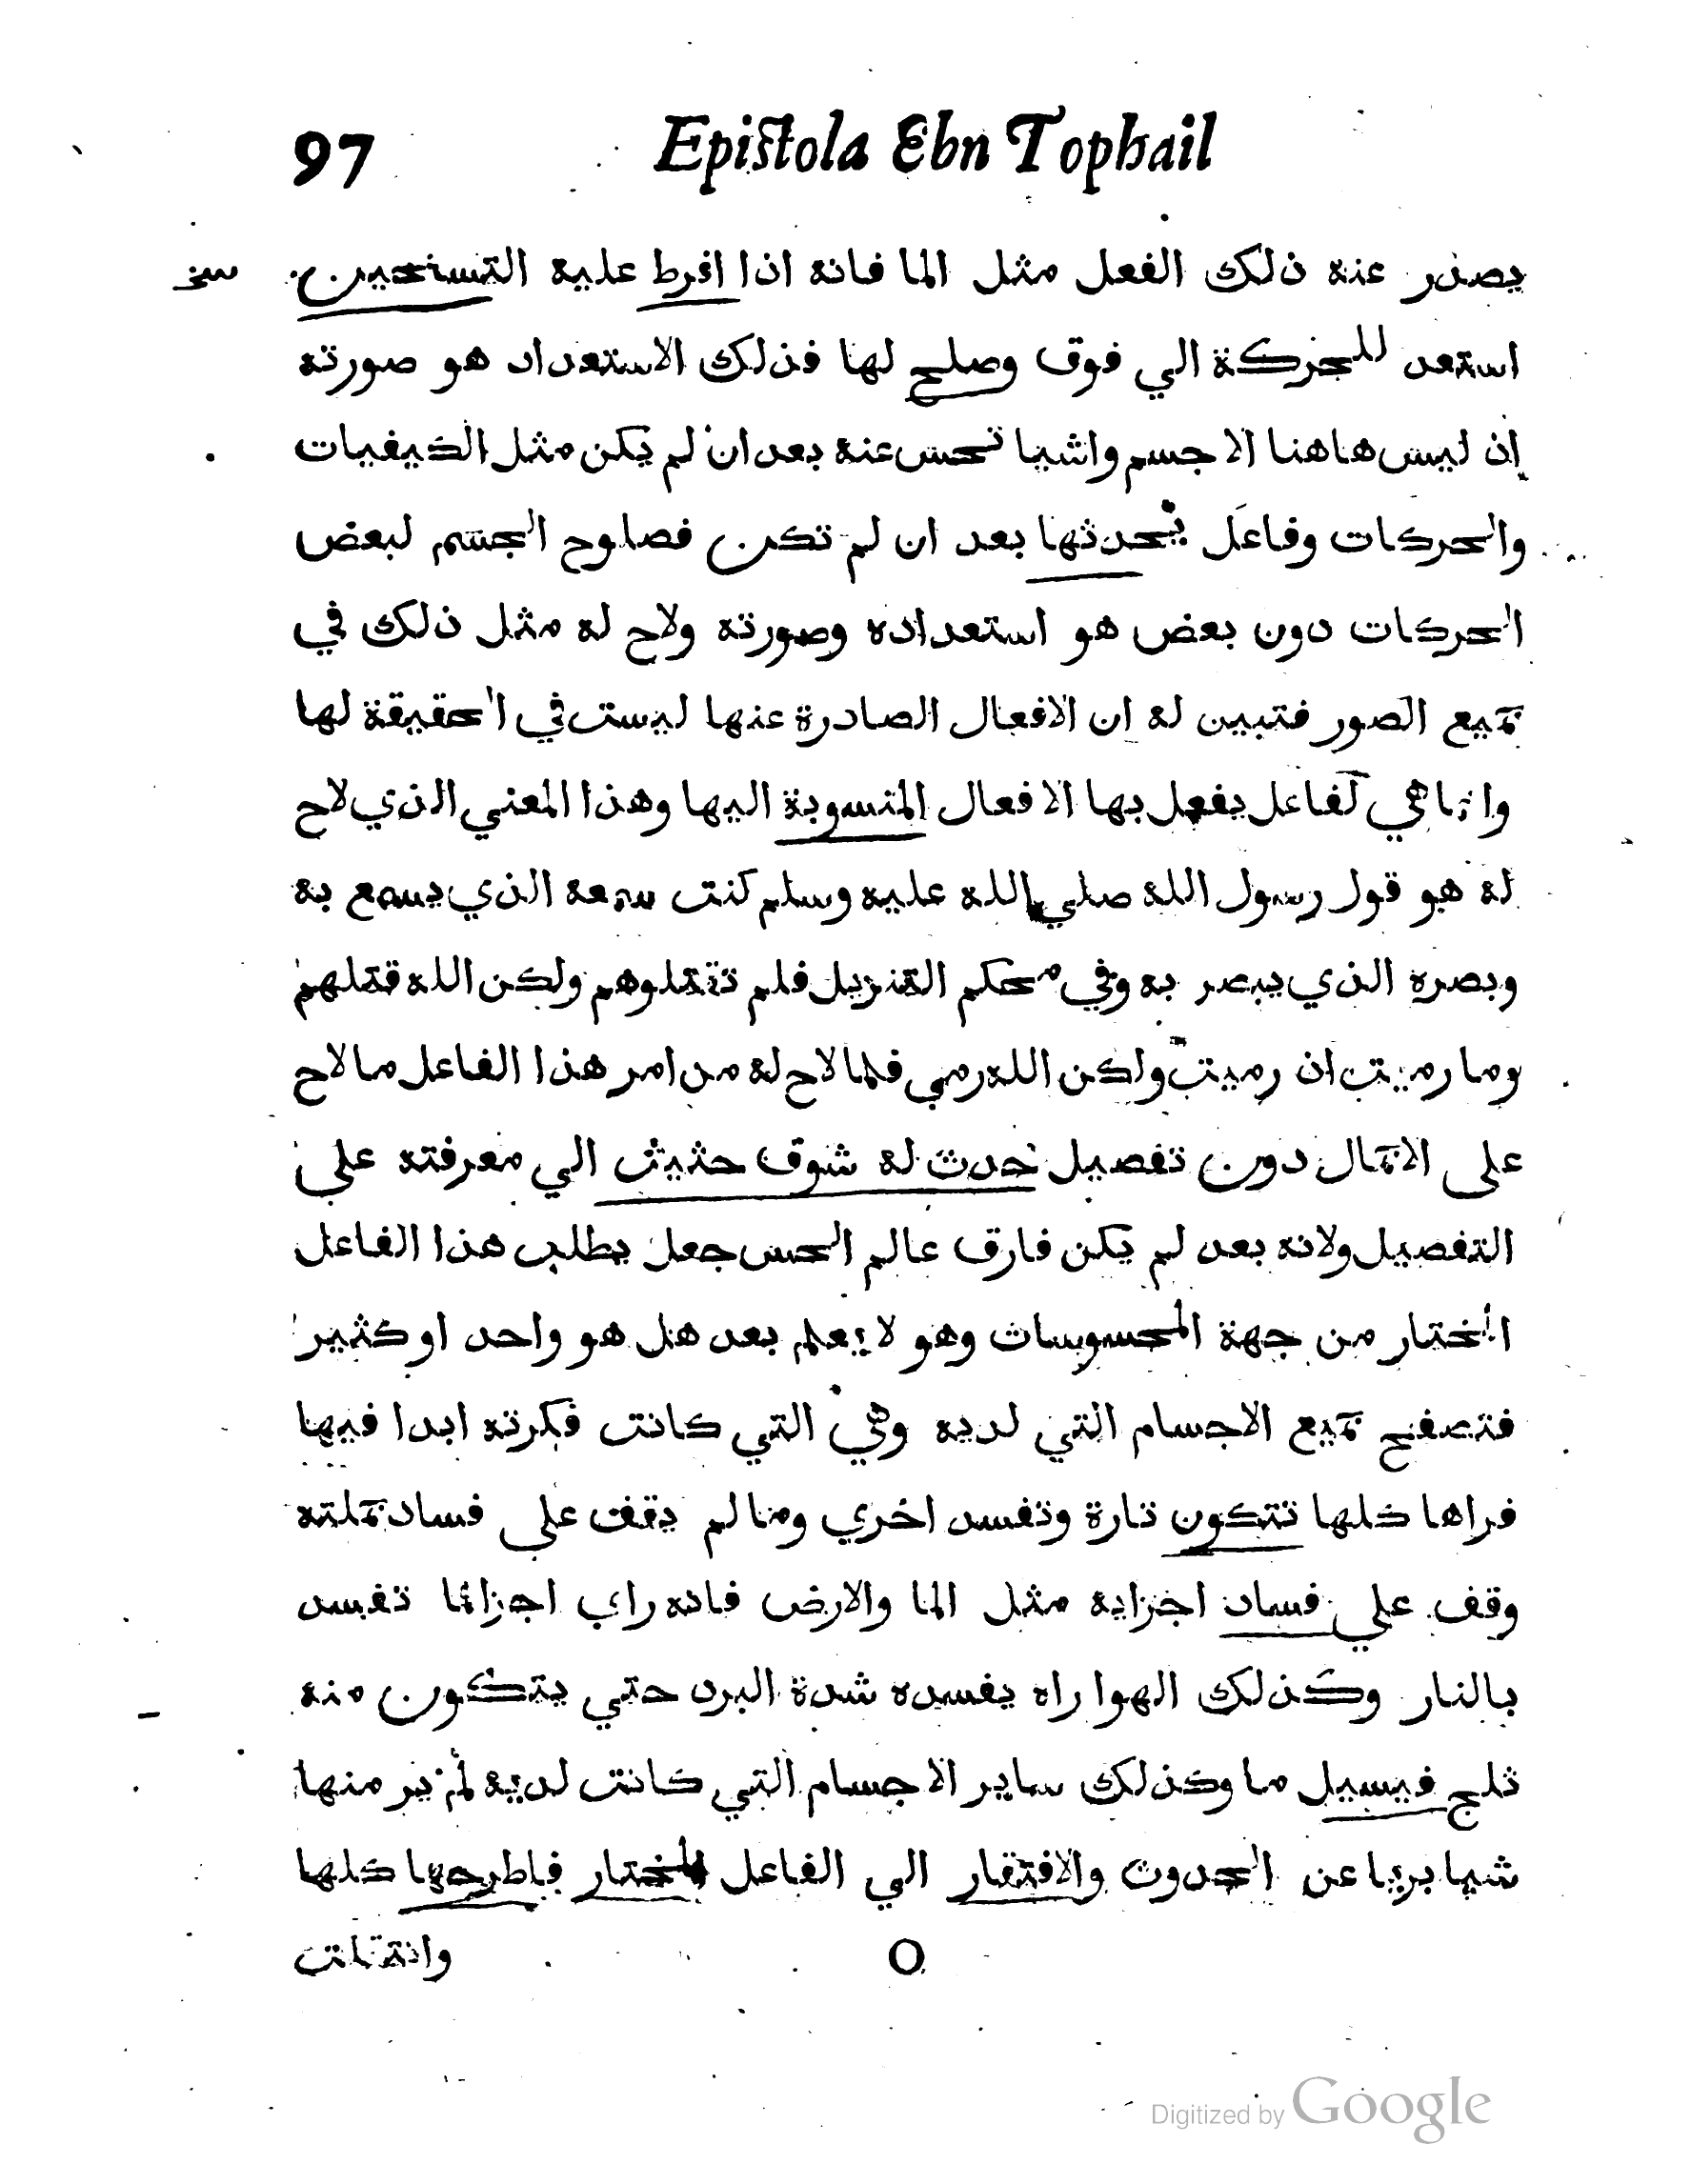 97 Epistola Ebn Tophail
يصدر عنه ذلك الفعل مثل الما فانه اذا افرط عليه التسخين سخ
استعد للحركة الي فوق وصلح لها فذلك الاستعداد هو صورته
اذ ليس هاهنا الا جسم واشيا تحس عنه بعد ان لم يكن مثل الكيفيات
والحركات وفاعل يحدثها بعد ان لم تكن فصلوح الجسم لبعض
الحركات دون بعض هو استعداده وصورته ولاح له مثل ذلك في
جميع الصور فتبين له ان الافعال الصادرة عنها ليست في الحقيقة لها
وانما هي لفاعل يفعل بها الافعال المنسوبة اليها وهذا المعني الذي لاح
له هو قول رسول الله صلي الله عليه وسلم كنت سمعه الذي يسمع به
وبصره الذي يبصر به وفي محكم التنزيل فلم تقتلوهم ولكن الله قتلهم
وما رميت اذ رميت ولكن الله رمي فلما لاح له من امر هذا الفاعل ما لاح
علي الاجمال دون تفصيل حدث له شوق حثيث الي معرفته علي
التفصيل ولانه بعد لم يكن فارق عالم الحس جعل يطلب هذا الفاعل
المختار من جهة المحسوسات وهو لا يعلم بعد هل هو واحد او كثير
فتصفح جميع الاجسام التي لديه وهي التي كانت فكرته ابدا فيها
فراها كلها تتكون تارة وتفسد اخري وما لم يقف علي فساد جملته
وقف علي فساد اجزايه مثل الما والارض فانه راي اجزائما تفسد
بالنار وكذلك الهوا راه يفسده شدة البرد حتي يتكون منه
ثلج فيسيل ما وكذلك ساير الاجسام التي كانت لديه لم ير منها
شيا بريا عن الحدوث والافتقار الي الفاعل المختار فاطرحها كلها
وانتقلت
Digitized by Google